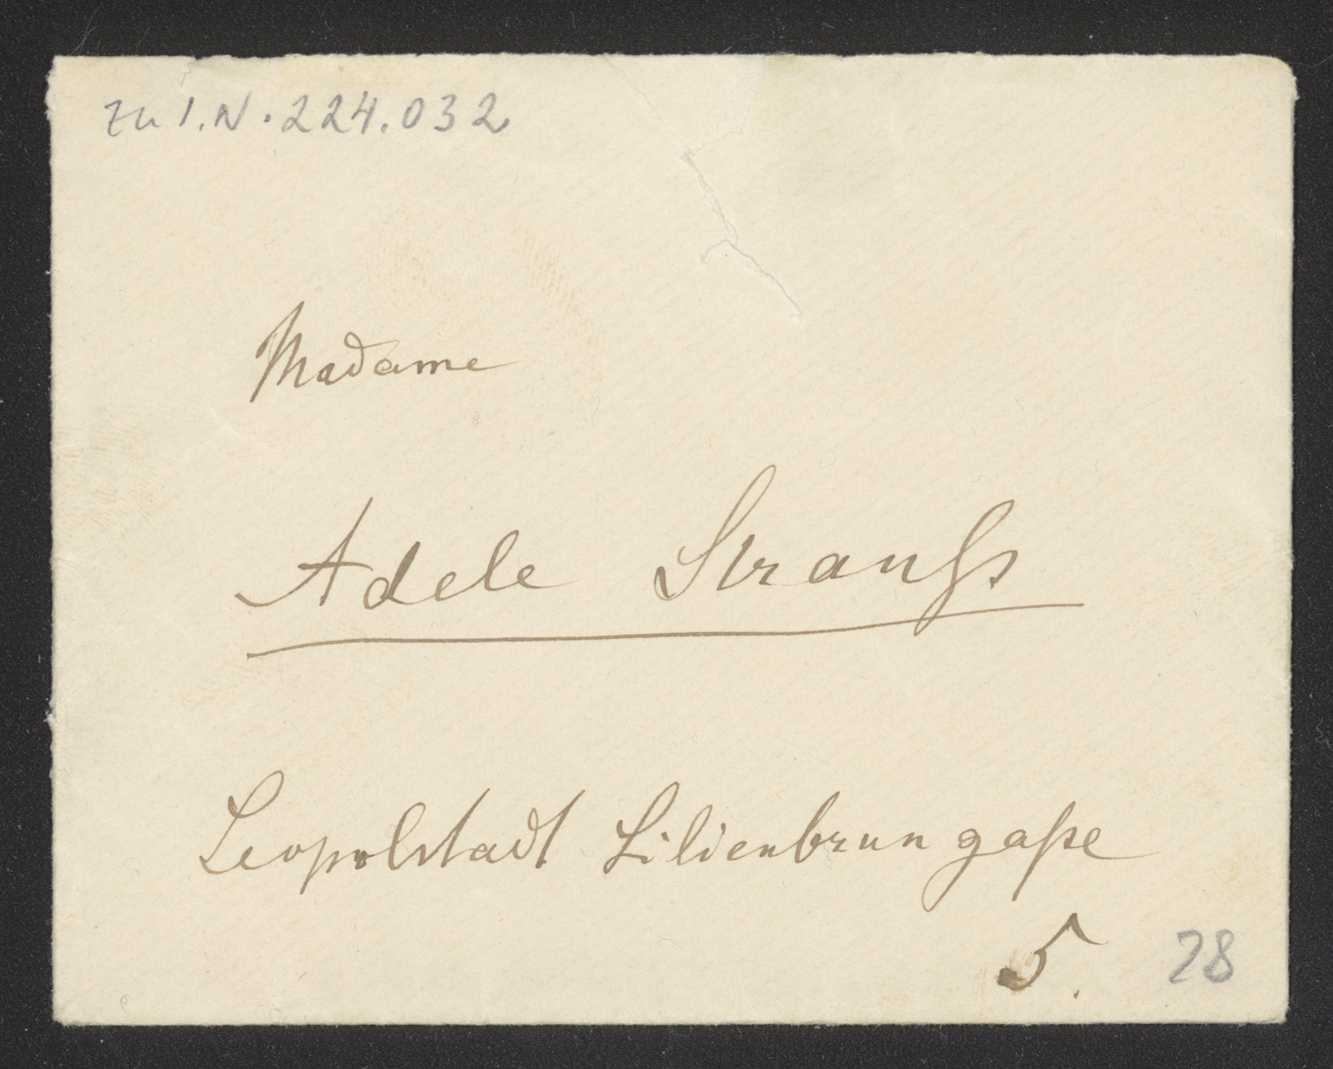 zu I.N. 224.032
Madame
Adele Strauß
Leopolstadt Lilienbrungaße
5.
28